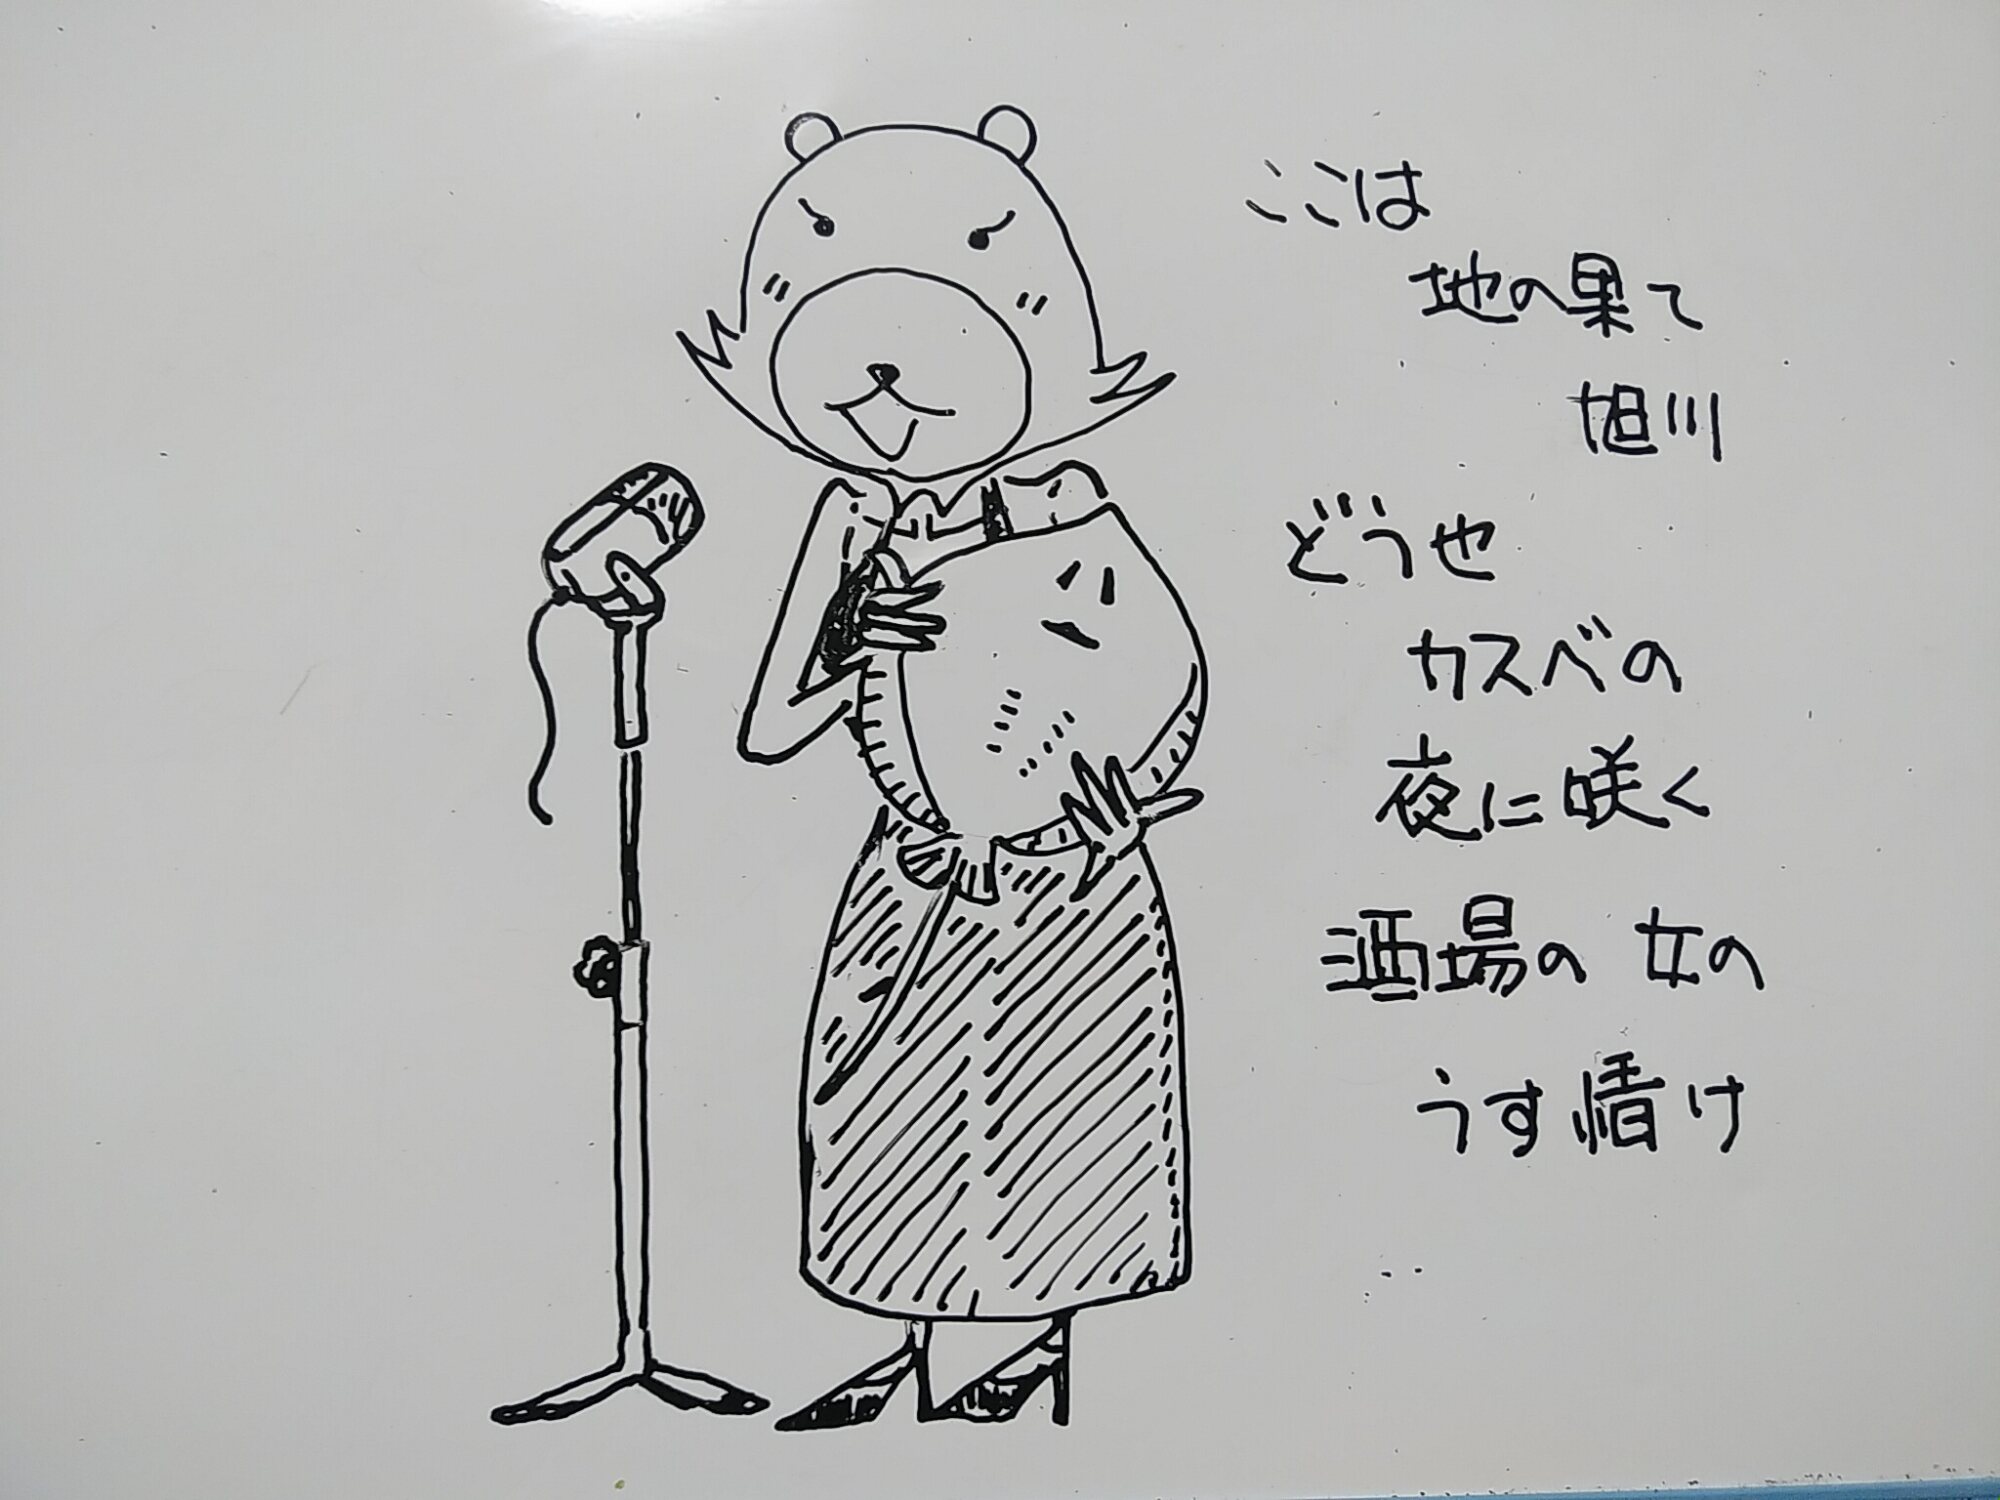 ここは
地の果て
旭川
どう也
カスベの
夜に咲く
酒場の 女の
うす情け